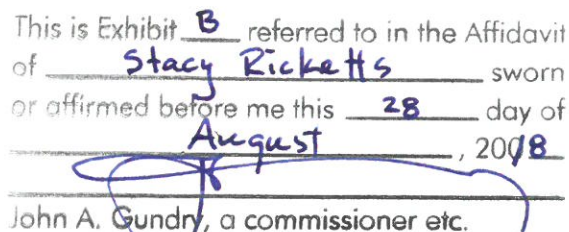 This is Exhibit B referred to in the Affidavit
of Stacy Ricketts sworn
or affirmed before me this 28 day of
August, 2018
John A. Gundry, a commissioner etc.